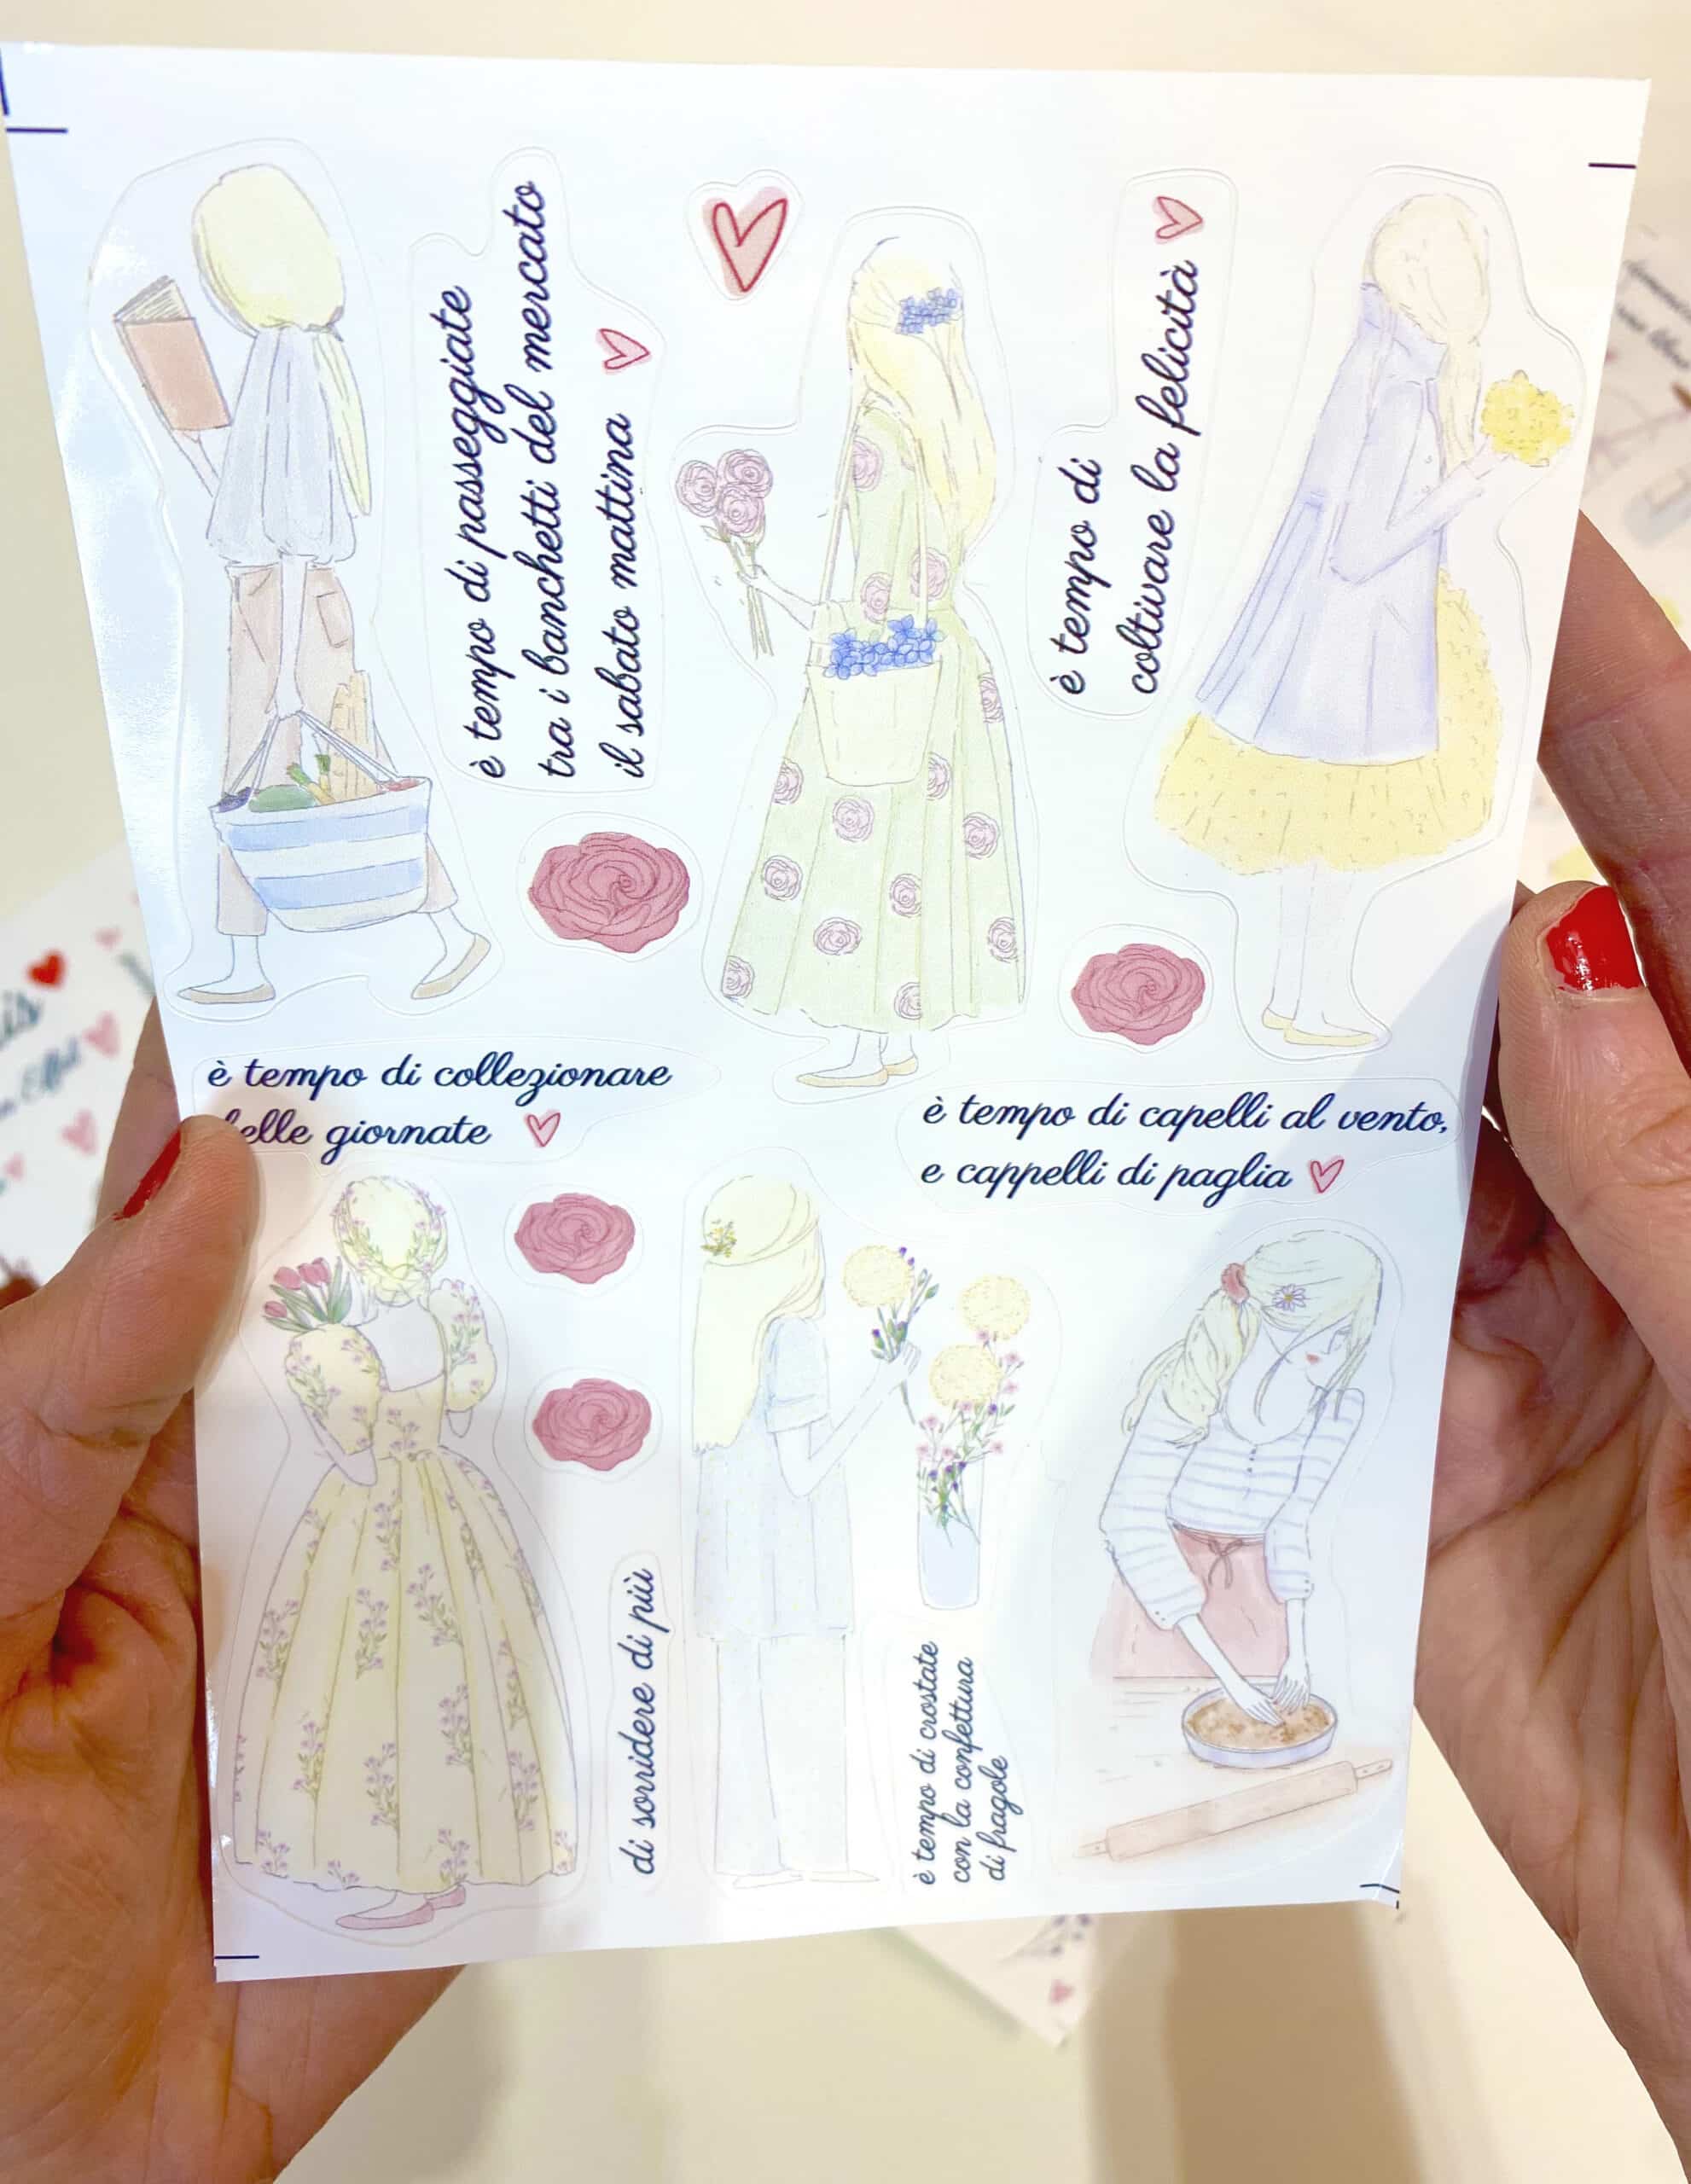 è tempo di passeggiate
tra i banchetti del mercato
il sabato mattina
è tempo di
coltivare la felicità
è tempo di collezionare
giornate
è tempo di capelli al vento,
e cappelli di paglia
di sorridere di più
è tempo di crostate
con la confettura
di fragole